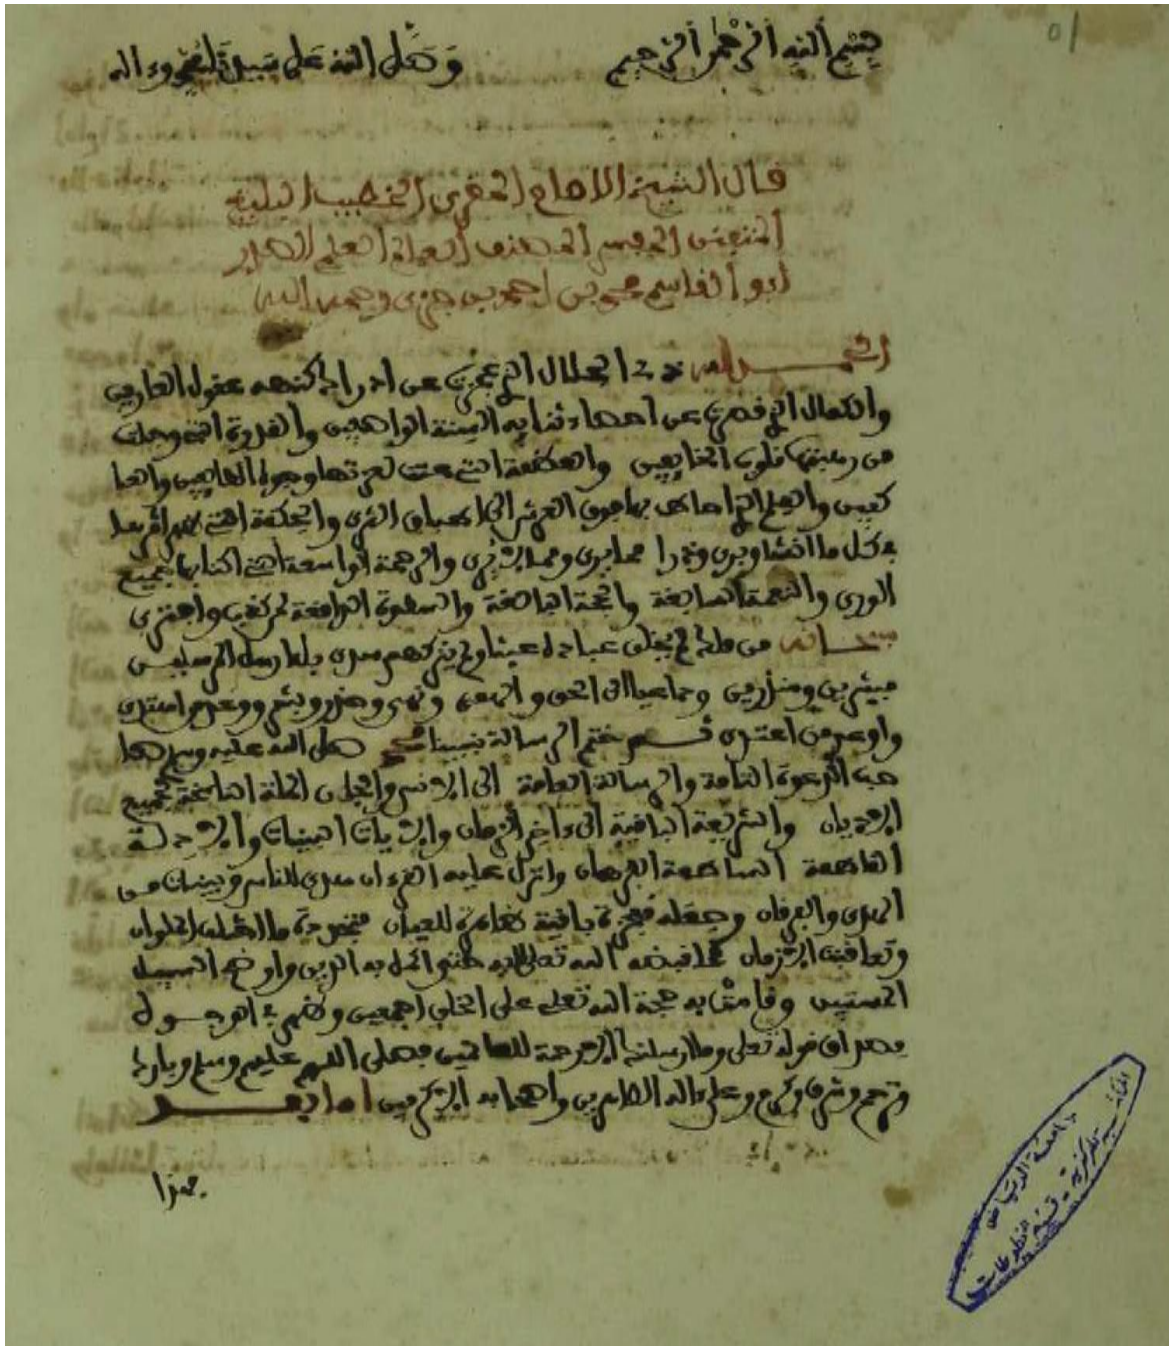 بسم الله الرحمن الرحيم وصلى الله على سيدنا محمد وءاله
قال الشيخ الامام المقري الخطيب البليغ
المتفنن المفسر المصنف العالم العلم الصدر
ابو القاسم محمد بن احمد بن جزي رحمه الله
الحمد لله ذي الجلال الذي عجزت عن ادراك كنهه عقول العارفين
والكمال الذي قصرت عن احصاء ثنايه السنة الواصفين والقدرة التي وجلت
من رهبتها قلوب الخايفين والعظمة التي عنت لعزتها وجوه الطايعين والعا
كفين والعلم الذي احاط بما فوق العرش الى اطباق الثرى والحكمة التي
في كل ما انشا وبرى وذرا مما يرى ومما لا يرى والرحمة الواسعة التي اكنافها لجميع
الورى والنعمة السابغة والحجة البالغة والسطوة الدامغة لمن كفر وافترى
سبحانه من ملك لم يخلق عباده عبثا ولم يتركهم سدى بل ارسل المرسلين
مبشرين ومنذرين وداعين الى الحق والهدى ونهى وحذر وبشر ووعد من اهتدى
واوعد من اعتدى ثم ختم الرسالة بنبينا محمد صلى الله عليه وسلم صا
حب الدعوة التامة والرسالة العامة الى الانس والجان الملة الناسخة لجميع
الاديان والشريعة الباقية الى ءاخر الزمان والايات البينات والادلة
القاطعة الساطعة البرهان وانزل عليه القرءان هدى للناس وبينات من
الهدى والفرقان وجعله معجزة باقية ظاهرة للعيان متجددة ما اختلف الملوان
وتعاقبت الازمان فما قبضه الله تعلى اليه حتى اكمل به الدين واوضح السبيل
المستبين وقامت به حجة الله تعلى على الخلق اجمعين وظهر
مصداق قوله تعلى وما ارسلناك الا رحمة للعالمين فصلى اللهم عليه وسلم وبارك
وترحم وشرف وكرم وعلى ءاله الطاهرين واصحابه الاكرمين اما بعد
فهذا
جامعة الرياض
المكتبة المركزية - قسم المخطوطات